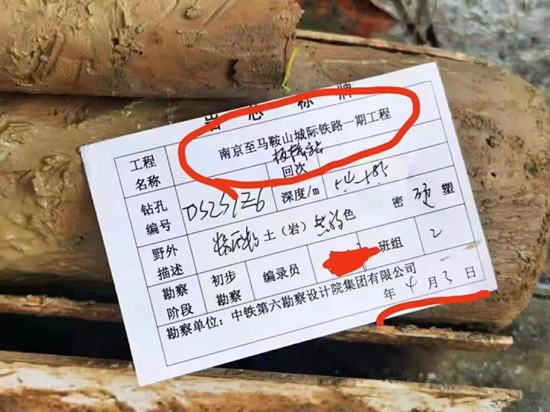 岩芯标牌
工程名称 南京至马鞍山城际铁路一期工程
板桥站
钻孔编号 回次 深度/m
野外描述 粉质黏土（岩） 黄褐色 密 硬塑
勘察阶段 初步勘察 编录员 班组 2
勘察单位：中铁第六勘察设计院集团有限公司
年4月3日